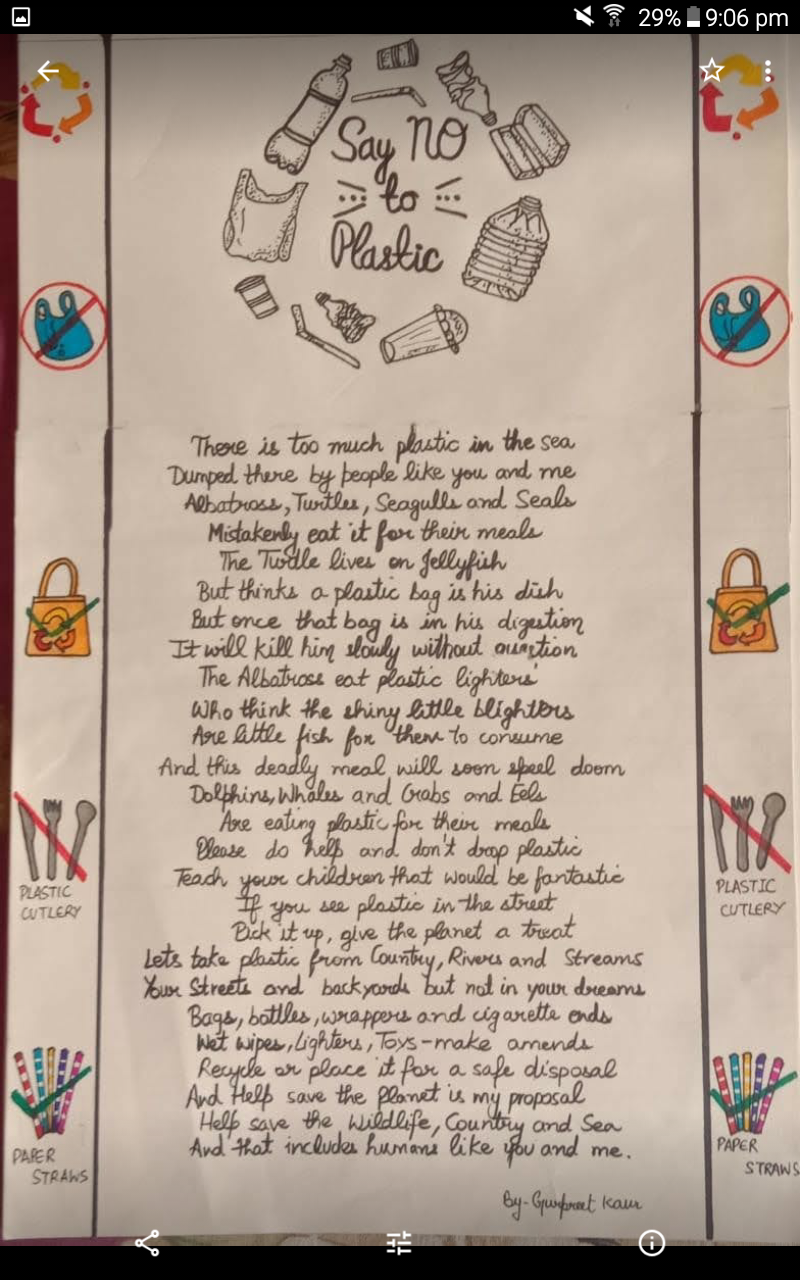 29% 9:06 pm
Say NO
to
Plastic
There is too much plastic in the sea
Dumped there by people like you and me
Albatross, Turtles, Seagulls and Seals
Mistakenly eat it for their meals
The Turtle lives on Jellyfish
But thinks a plastic bag is his dish
But once that bag is in his digestion
It will kill him slowly without question
The Albatross eat plastic lighters
Who think the shiny little blighters
Are little fish for them to consume
And this deadly meal will soon speel doom
Dolphins, Whales and Crabs and Eels
Are eating plastic for their meals
Please do help and don't drop plastic
Teach your children that would be fantastic
If you see plastic in the street
Pick it up, give the planet a treat
Lets take plastic from Country, Rivers and Streams
Your Streets and backyards but not in your dreams
Bags, bottles, wrappers and cigarette ends
Wet wipes, Lighters, Toys-make amends
Recycle or place it for a safe disposal
And Help save the Planet is my proposal
Help save the Wildlife, Country and Sea
And that includes humans like you and me.
By- Gurpreet Kaur
PLASTIC
CUTLERY
PAPER
STRAWS
PLASTIC
CUTLERY
PAPER
STRAWS